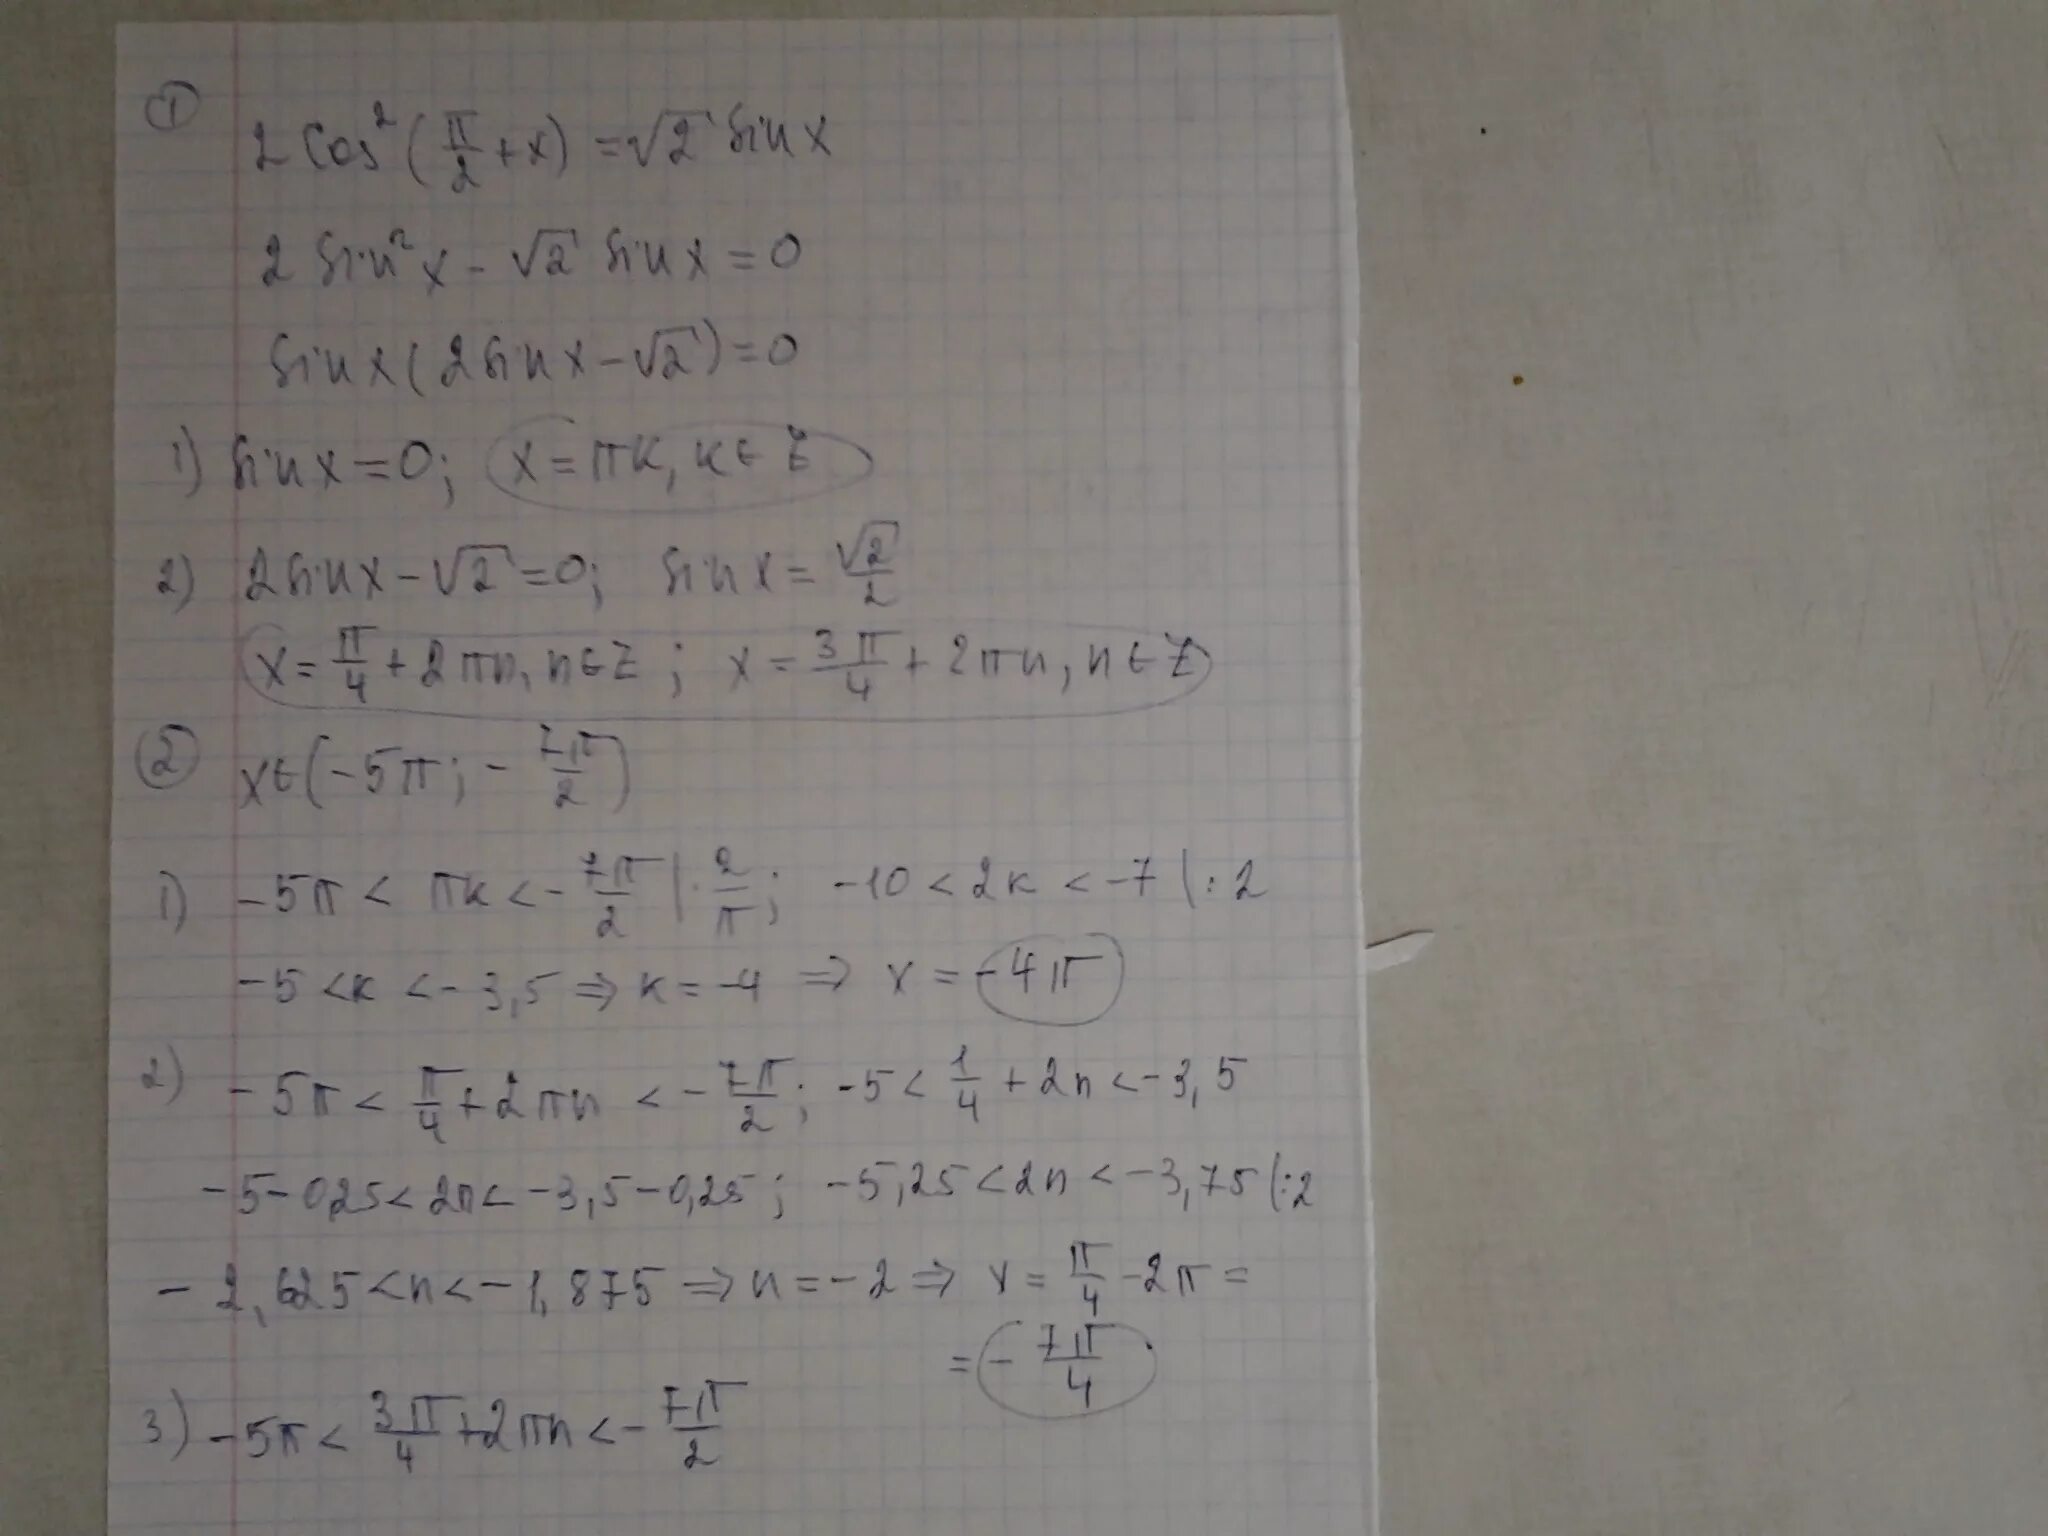 ①
2 cos²(π/2 + x) = √2 sin x
2 sin²x - √2 sin x = 0
sin x (2 sin x - √2) = 0
1) sin x = 0; x = πk, k ∈ Z
2) 2 sin x - √2 = 0; sin x = √2/2
x = π/4 + 2πn, n ∈ Z; x = 3π/4 + 2πn, n ∈ Z
② x ∈ (-5π; -7π/2)
1) -5π < πk < -7π/2 | · 2/π; -10 < 2k < -7 | : 2
-5 < k < -3,5 ⇒ k = -4 ⇒ x = -4π
2) -5π < π/4 + 2πn < -7π/2; -5 < 1/4 + 2n < -3,5
-5 - 0,25 < 2n < -3,5 - 0,25; -5,25 < 2n < -3,75 | : 2
-2,625 < n < -1,875 ⇒ n = -2 ⇒ x = π/4 - 2π =
= -7π/4
3) -5π < 3π/4 + 2πn < -7π/2